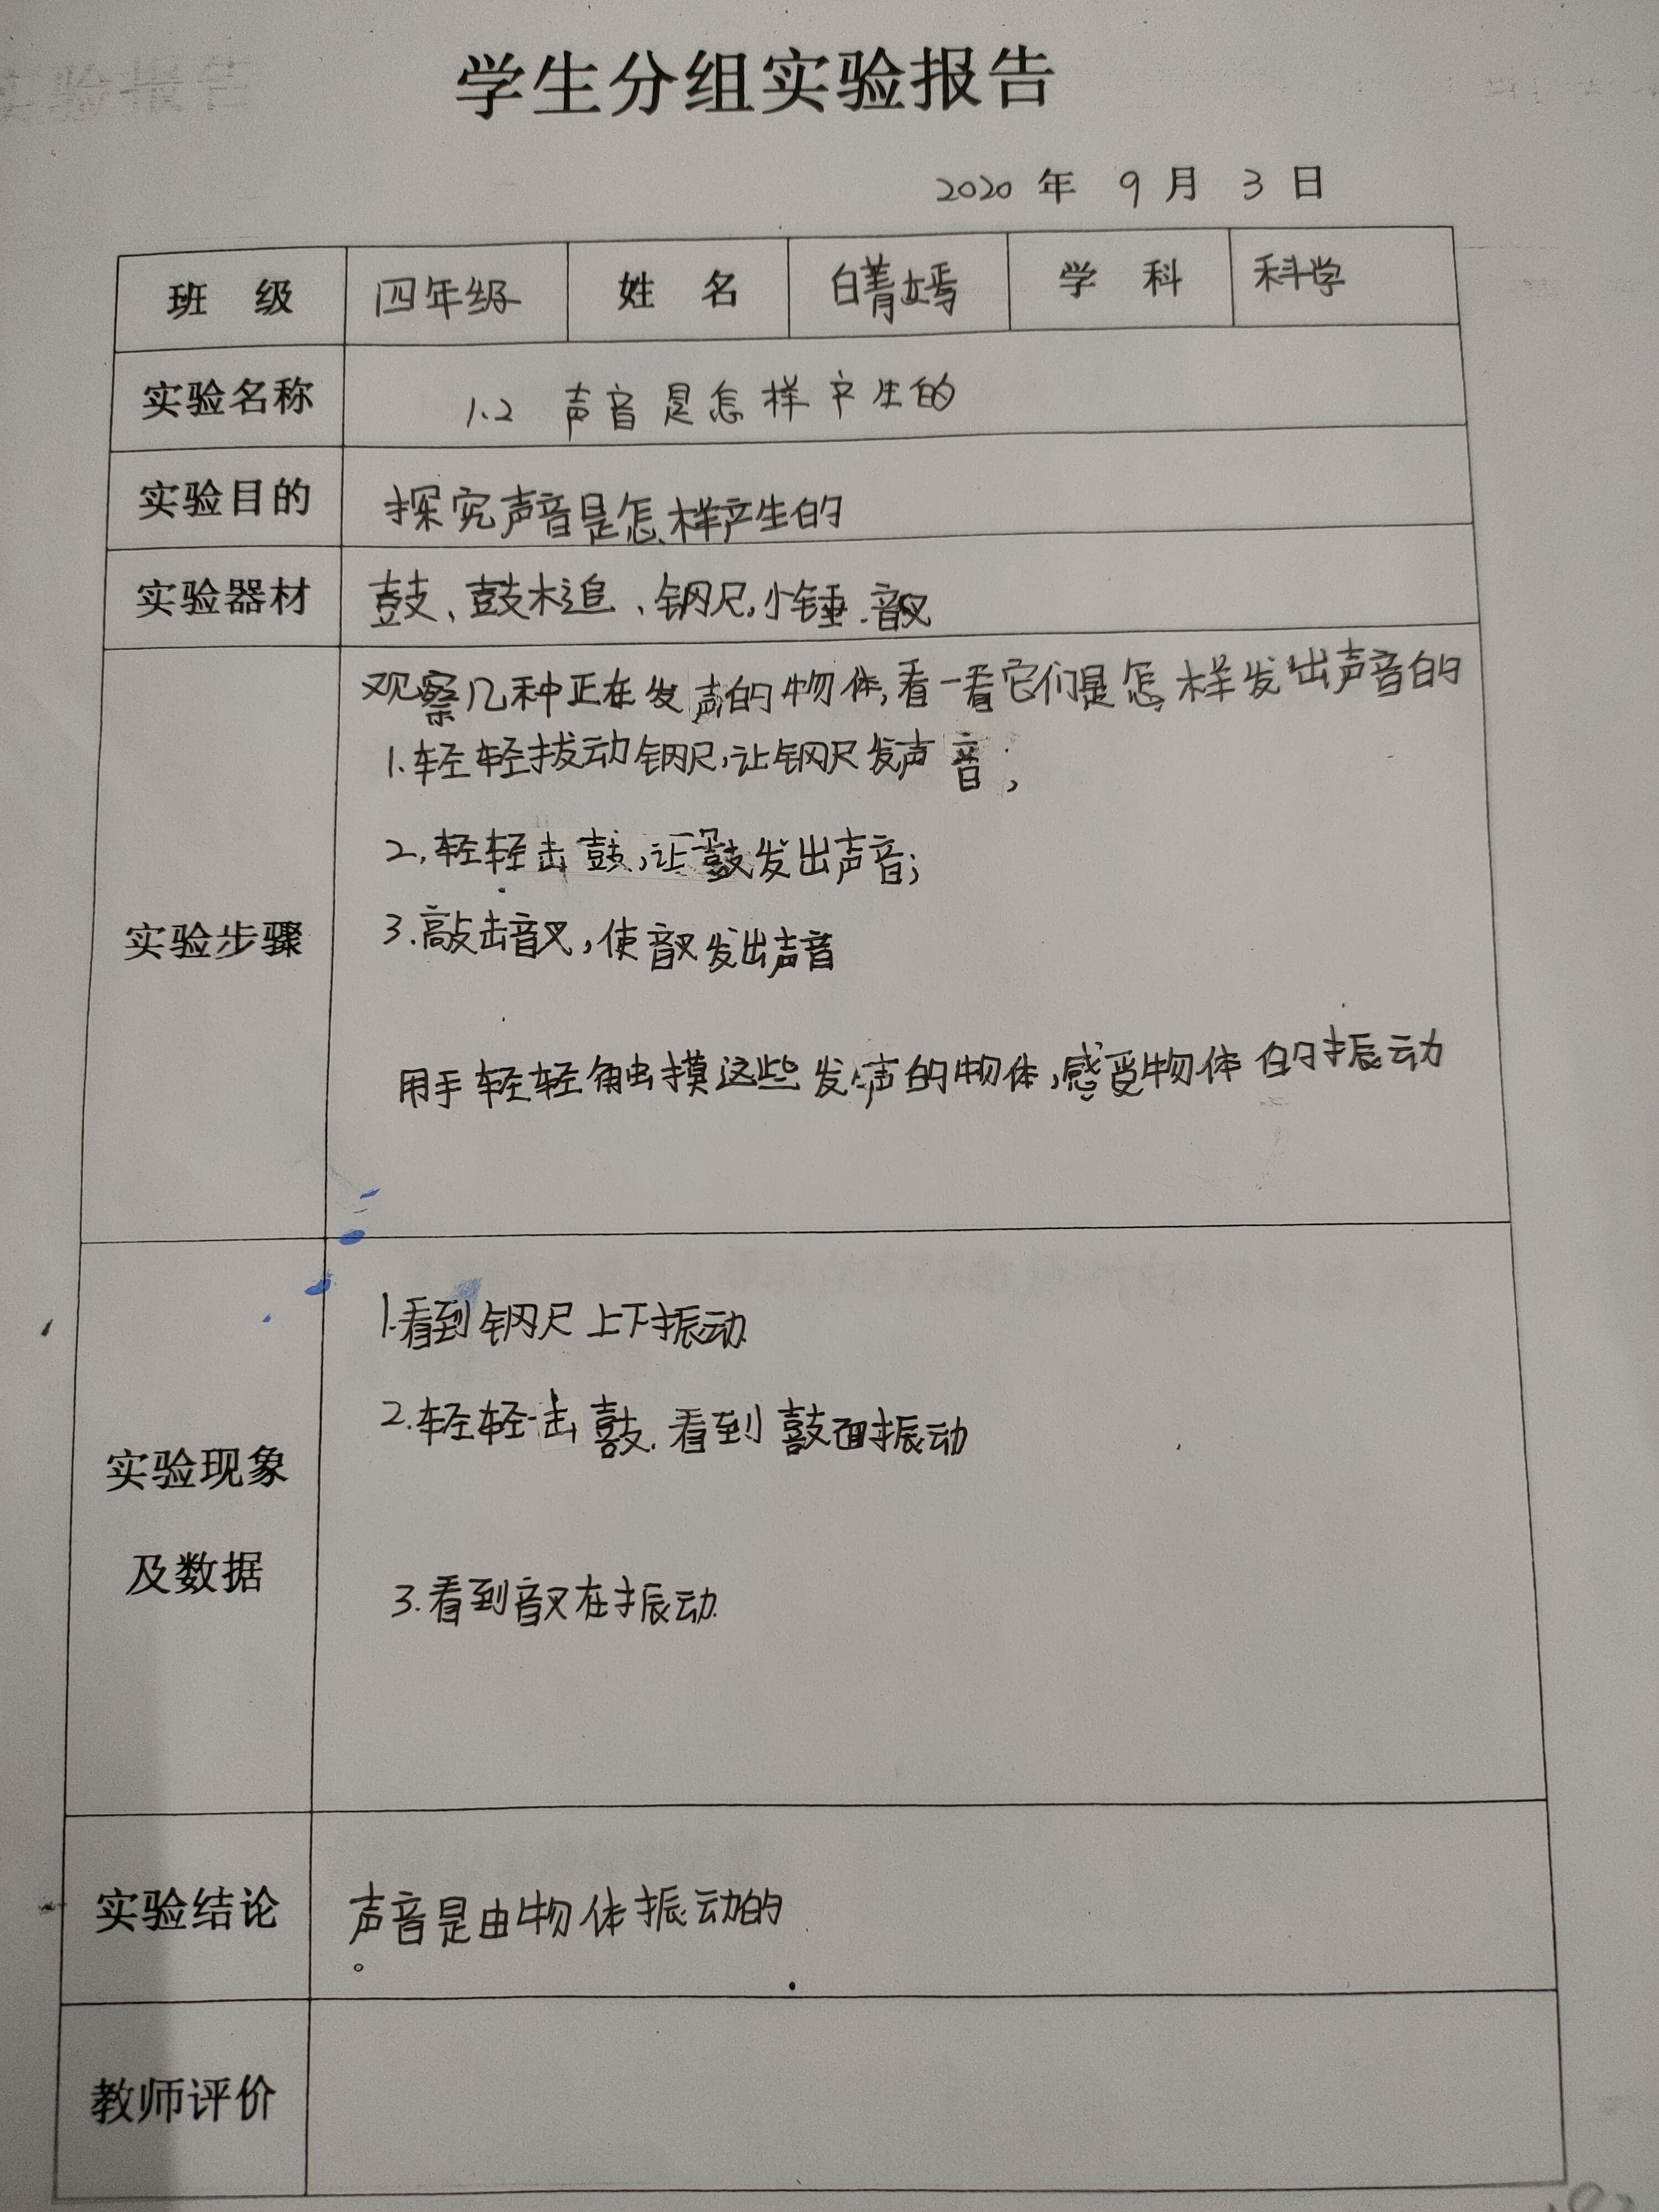 学生分组实验报告
2020 年 9 月 3 日
班 级 四年级 姓 名 白菁嫣 学 科 科学
实验名称 1.2 声音是怎样产生的
实验目的 探究声音是怎样产生的
实验器材 鼓、鼓槌、钢尺,小锤.音叉
观察几种正在发声的物体,看一看它们是怎样发出声音的
1.轻轻拔动钢尺,让钢尺发声音;
2,轻轻击鼓,让鼓发出声音;
实验步骤 3.敲击音叉,使音叉发出声音
用手轻轻触摸这些发声的物体,感受物体的振动
1.看到钢尺上下振动.
2.轻轻击鼓.看到鼓面振动
实验现象
及数据
3.看到音叉在振动.
实验结论 声音是由物体振动的
。
教师评价